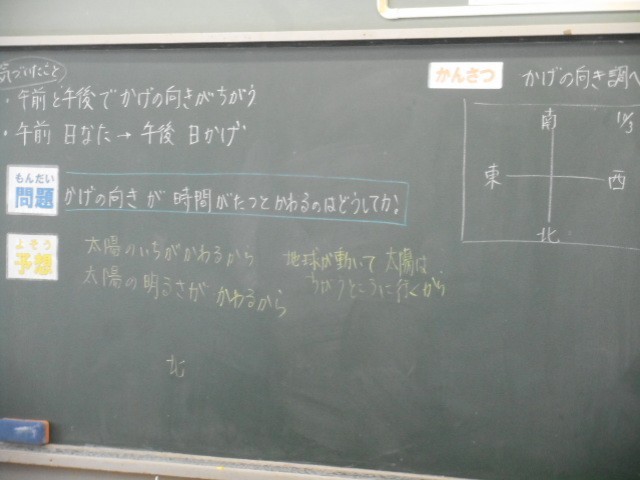 気づいたこと
・午前と午後でかげの向きがちがう
・午前 日なた→午後 日かげ
もんだい
問題
かげの向きが時間がたつとかわるのはどうしてか?
よそう
予想
太陽のいちがかわるから
太陽の明るさがかわるから
地球が動いて太陽は
ちがうところに行くから
北
かんさつ
かげの向き調べ
南
東
西
北